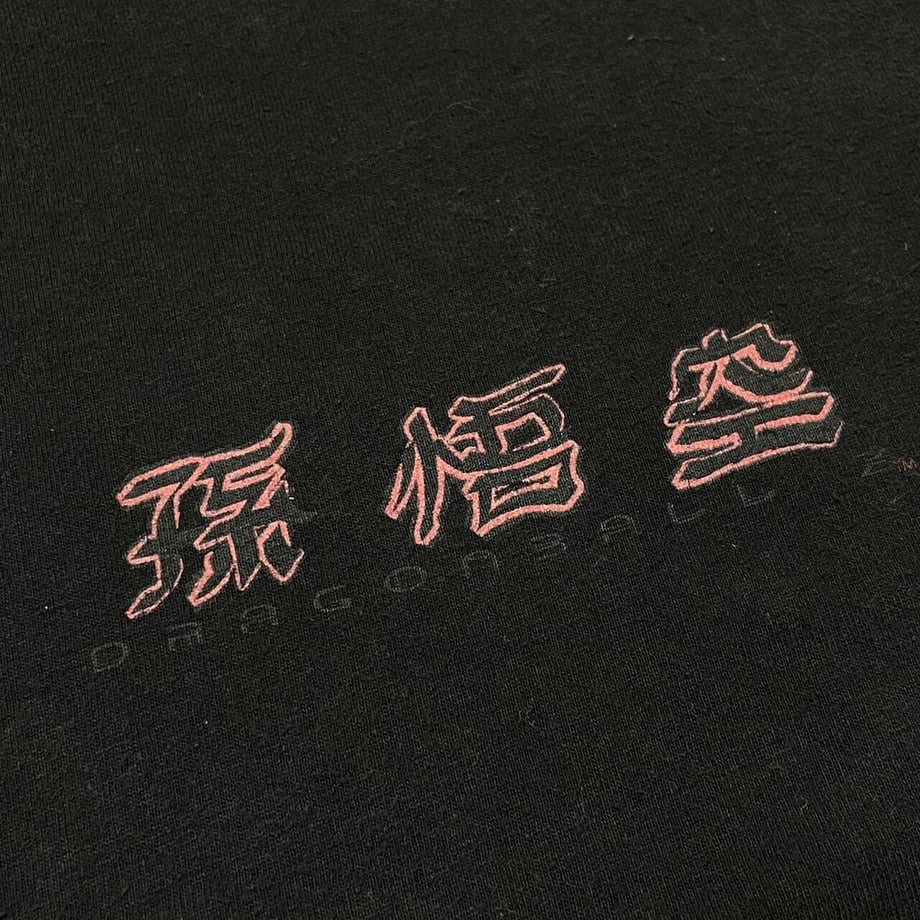 孫悟空
DRAGONBALL Z™